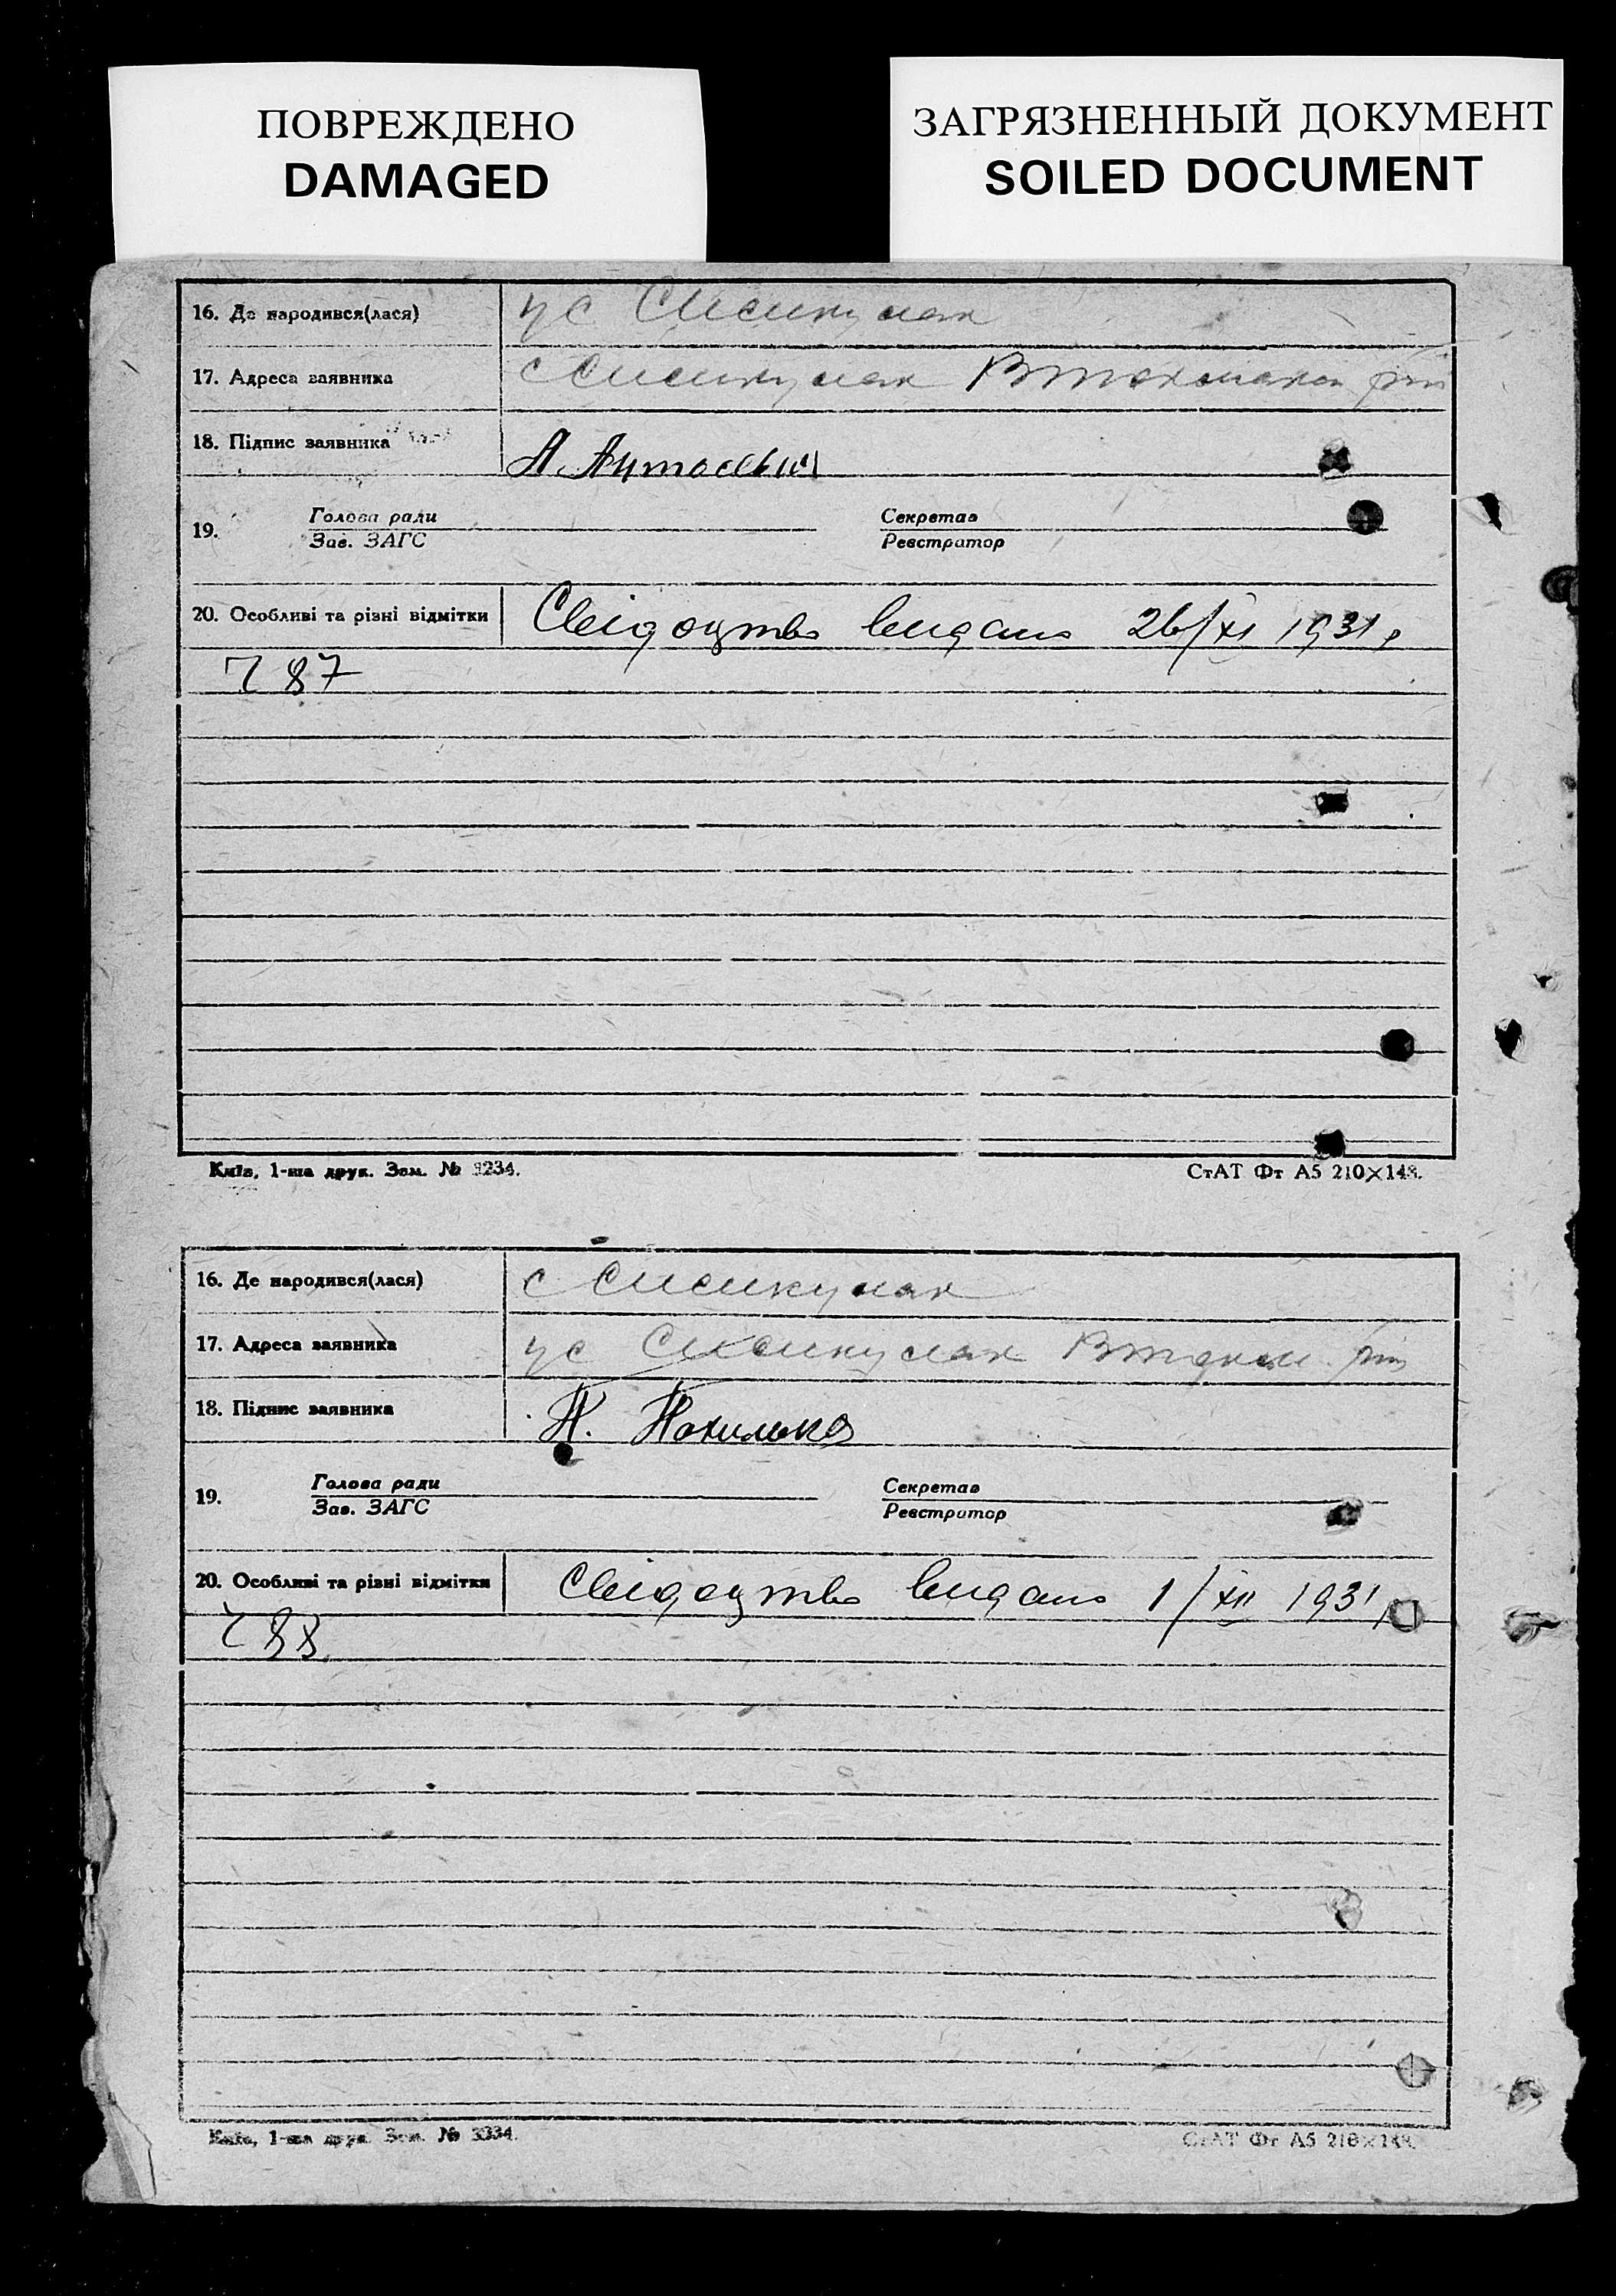 ПОВРЕЖДЕНО
DAMAGED
ЗАГРЯЗНЕННЫЙ ДОКУМЕНТ
SOILED DOCUMENT
16. Де народився(лася) у с
17. Адреса заявника с
18. Підпис заявника А.
19. Голова ради Секретар
Зав. ЗАГС Реєстратор
20. Особливі та різні відмітки Свідоцтво видано 26/XI 1931 р
787
Київ, 1-ша друк. Зам. № 3234. СтАТ Фт А5 210×148.
16. Де народився(лася) с
17. Адреса заявника у с
18. Підпис заявника Н.
19. Голова ради Секретар
Зав. ЗАГС Реєстратор
20. Особливі та різні відмітки Свідоцтво видано 1/XII 1931
788
Київ, 1-ша друк. Зам. № 3234. СтАТ Фт А5 210×148.